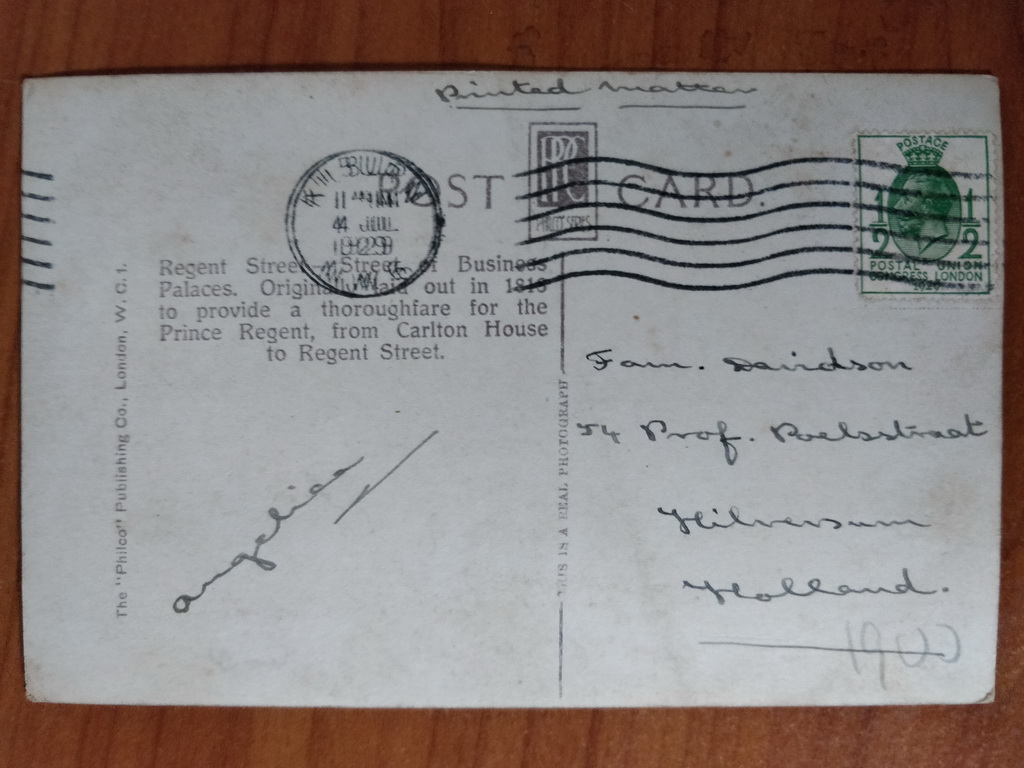 Printed matter
POST CARD.
11
4 JUL
1929
POSTAGE
1/2 1/2
POSTAL UNION
CONGRESS LONDON
1929
Regent Street – Street of Business
Palaces. Originally laid out in 1813
to provide a thoroughfare for the
Prince Regent, from Carlton House
to Regent Street.
The "Philco" Publishing Co., London, W.C.1.
THIS IS A REAL PHOTOGRAPH
Fam. Davidson
54 Prof. Roelsstraat
Hilversum
Holland.
1900
angelica